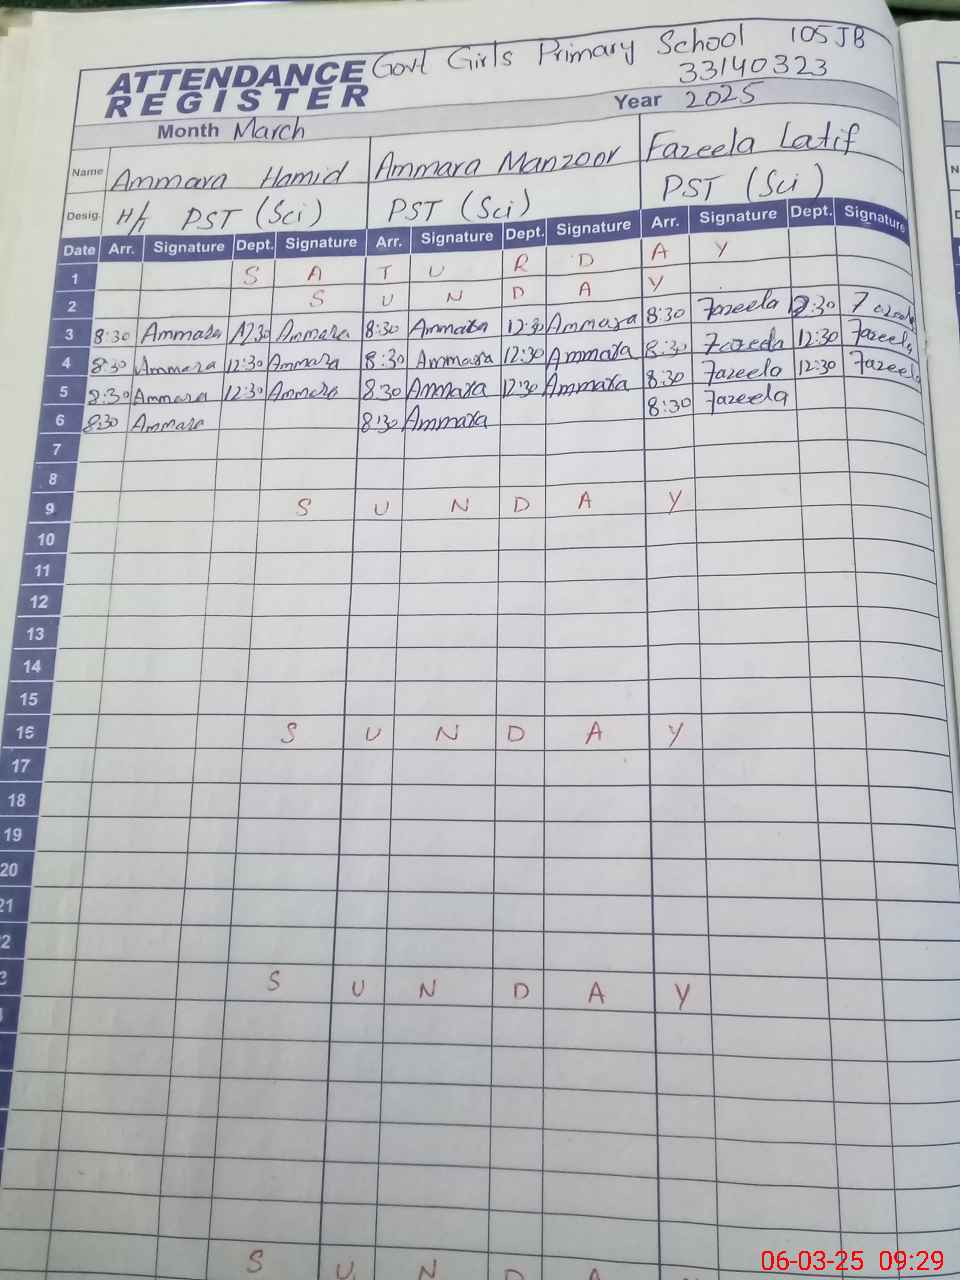 Govt Girls Primary School 105 JB
33140323
ATTENDANCE
REGISTER
Year 2025
Month March
Name Ammara Hamid Ammara Manzoor Fazeela Latif
Desig. H/t PST (Sci) PST (Sci) PST (Sci)
Date Arr. Signature Dept. Signature Arr. Signature Dept. Signature Arr. Signature Dept. Signature
1 S A T U R D A Y
2 S U N D A Y
3 8:30 Ammara 12:30 Ammara 8:30 Ammara 12:30 Ammara 8:30 Fazeela 12:30 Fazeela
4 8:30 Ammara 12:30 Ammara 8:30 Ammara 12:30 Ammara 8:30 Fazeela 12:30 Fazeela
5 8:30 Ammara 12:30 Ammara 8:30 Ammara 12:30 Ammara 8:30 Fazeela 12:30 Fazeela
6 8:30 Ammara 8:30 Ammara 8:30 Fazeela
7
8
9 S U N D A Y
10
11
12
13
14
15
16 S U N D A Y
17
18
19
20
21
2
3 S U N D A Y
S U N D A
06-03-25 09:29